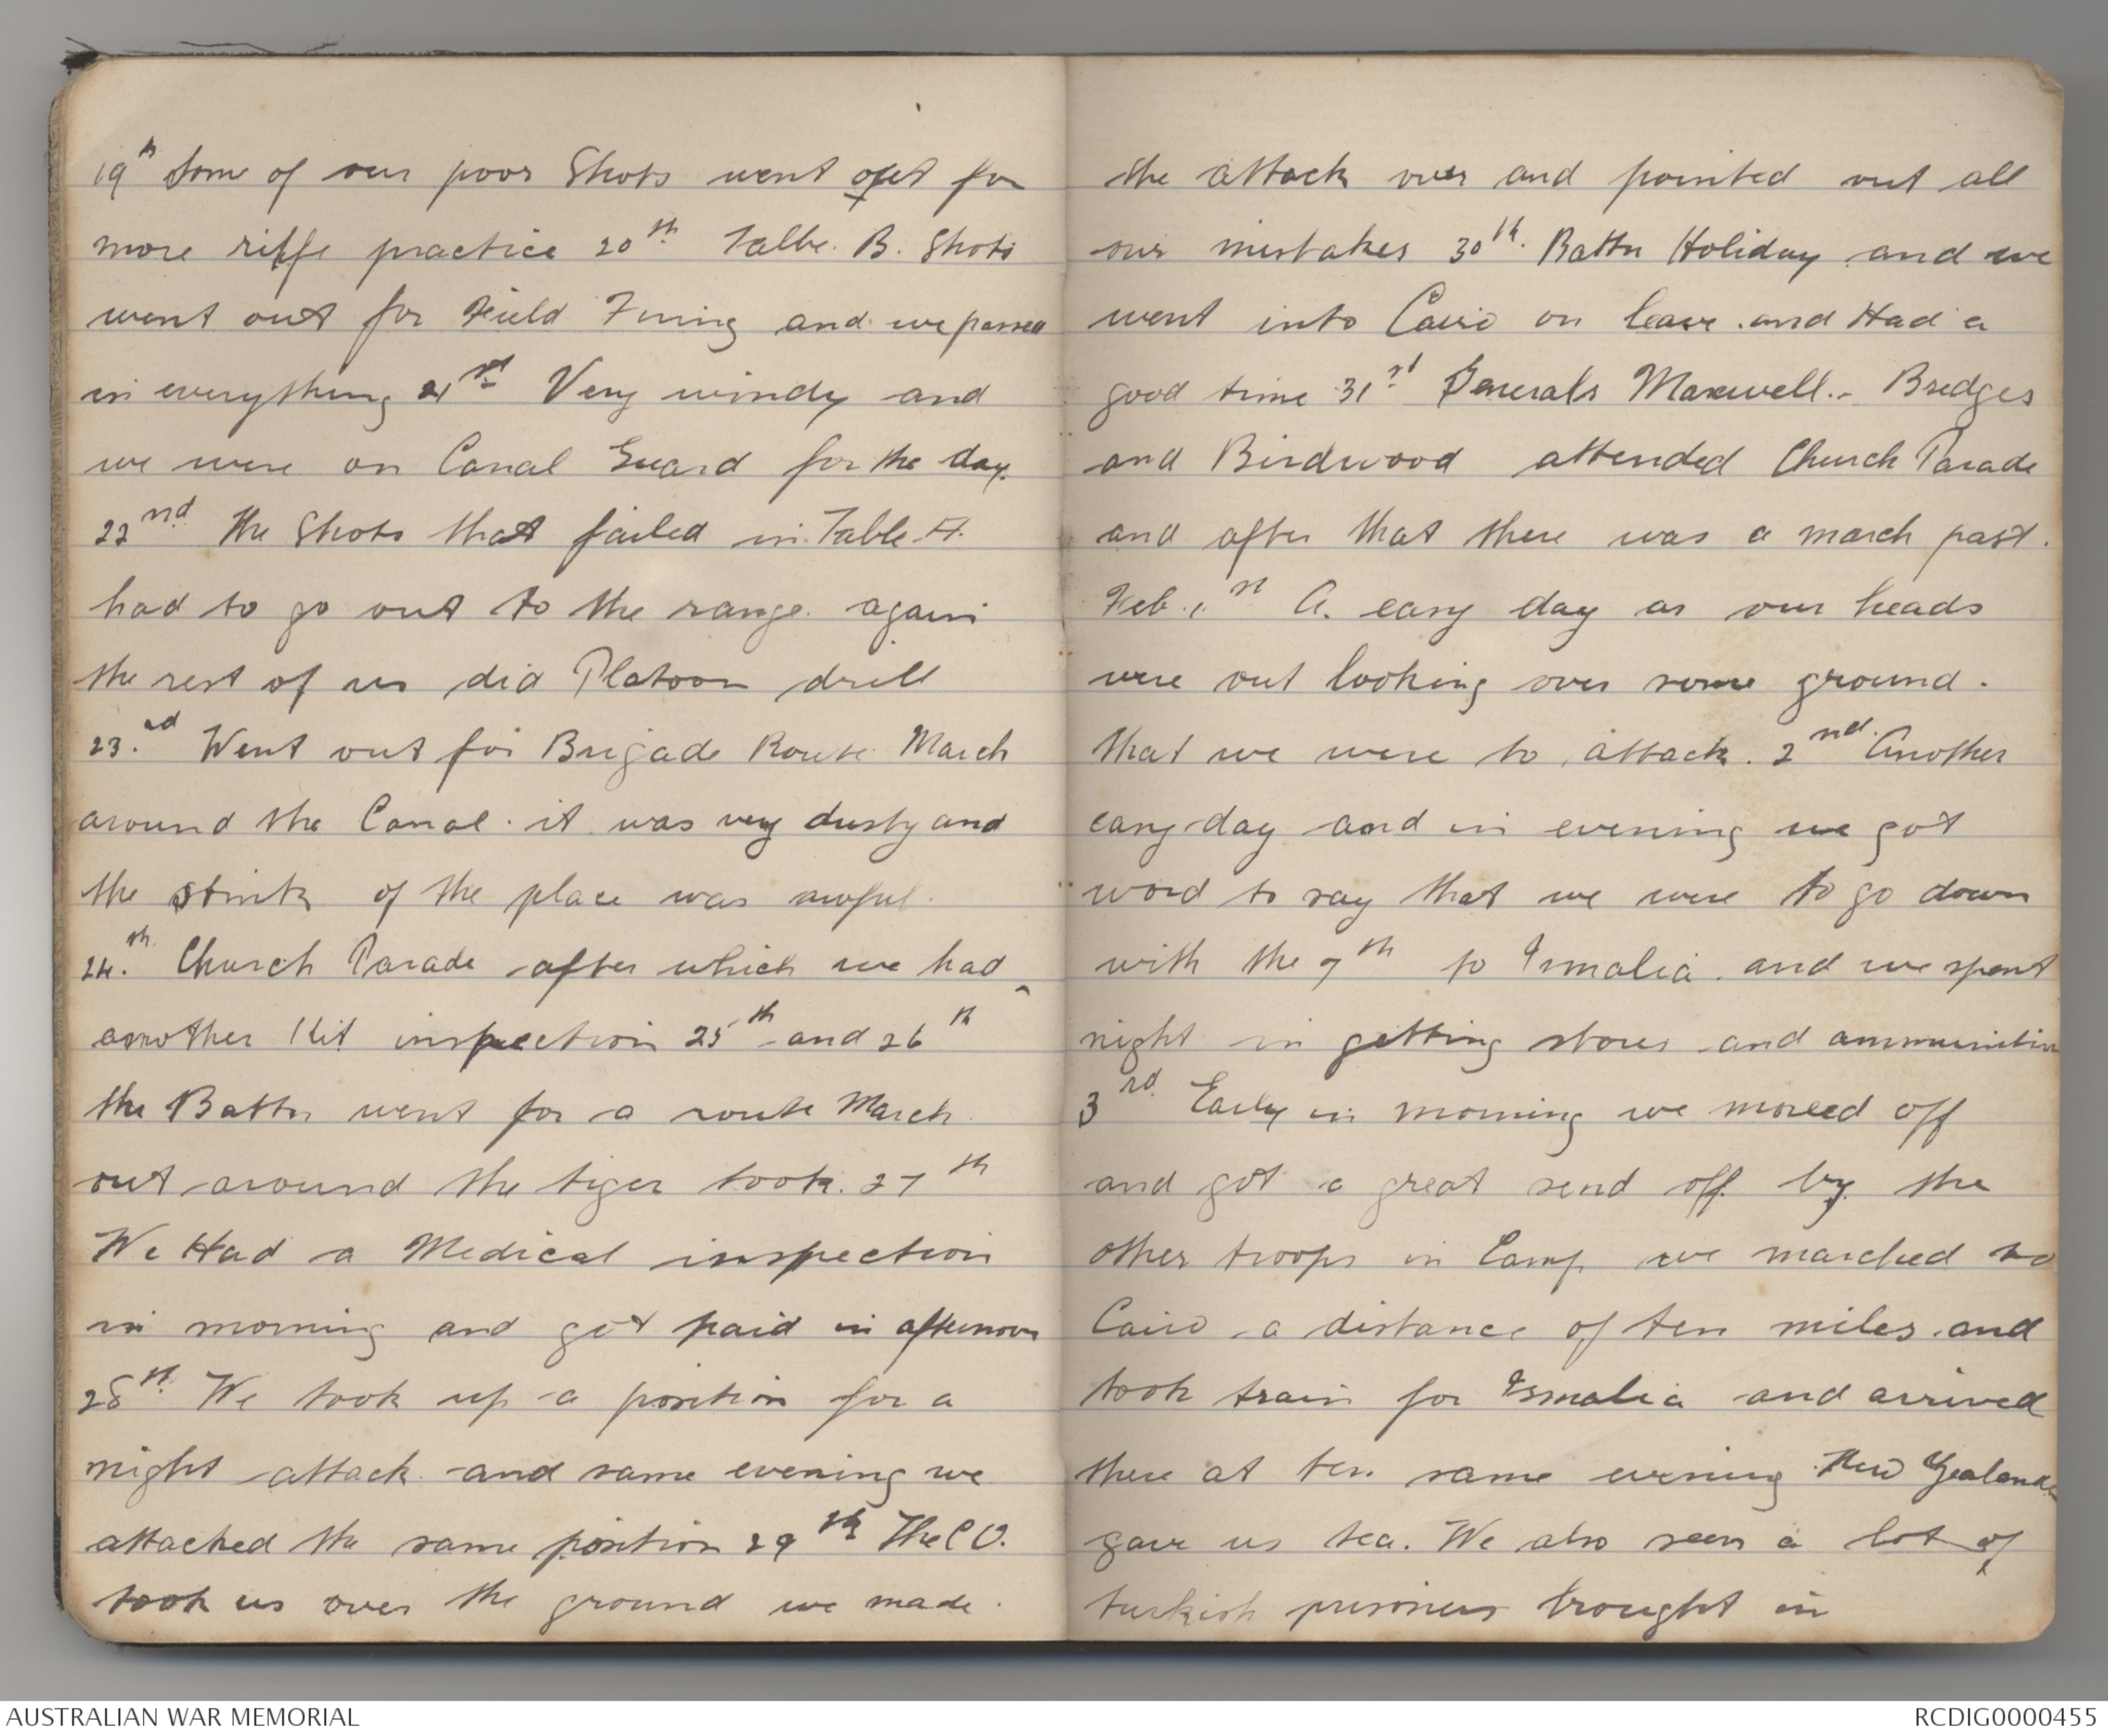 19th Some of our poor Shots went out for
more riffe practice 20th Talbe. B. Shots
went out for Field Firing and we passed
in everything 21st Very windy and
we were on Canal Guard for the day.
22nd The Shots that failed in Table A.
had to go out to the range again
the rest of us did Platoon drill
23.rd Went out for Brigade Route March
around the Canal. it was very dusty and
the stink of the place was awful.
24.th Church Parade after which we had
another Kit inspection 25th and 26th
the Battn went for a route March
out around the tiger took. 27th
We Had a Medical inspection
in morning and got paid in afternoon
28th We took up a position for a
night attack and same evening we
attacked the same position 29th The C O.
took us over the ground we made.
the attack over and pointed out all
our mistakes 30th. Battn Holiday and we
went into Cairo on leave. and Had a
good time 31st Generals Maxwell.- Bredges
and Birdwood attended Church Parade
and after that there was a march past.
Feb. 1st A. easy day as our heads
were out looking over some ground.
that we were to attack. 2nd Another
easy day and in evening we got
word to say that we were to go down
with the 7th to Ismalia. and we spent
night in getting stores and ammunition
3rd Early in morning we moved off
and got a great send off by the
other troops in Camp we marched to
Cairo a distance of ten miles. and
took train for Ismalia and arrived
there at ten same evening New Zealanders
gave us tea. We also seen a lot of
turkish prisoners brought in
AUSTRALIAN WAR MEMORIAL
RCDIG0000455